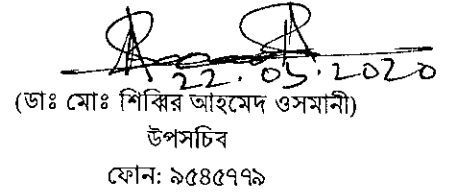 22.03.2020
(ডাঃ মোঃ শিব্বির আহমেদ ওসমানী)
উপসচিব
ফোন: ৯৫৪৫৭৭৯